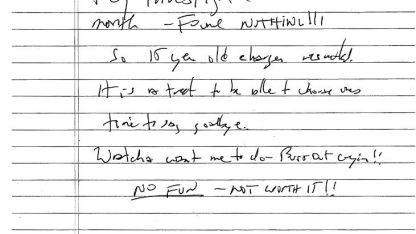 month - Found NOTHING!!!
So 15 year old charges resulted.
It is a treat to be able to choose ones
time to say goodbye.
Watcha want me to do - Burst out cryin!!
NO FUN - NOT WORTH IT!!